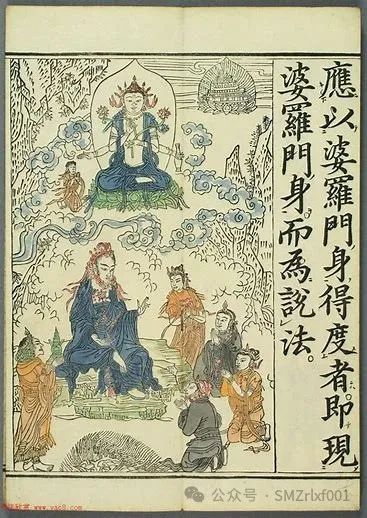 應以婆羅門身得度者。即現
婆羅門身而為說法。
公众号 · SMZrlxf001
www.yac8.com